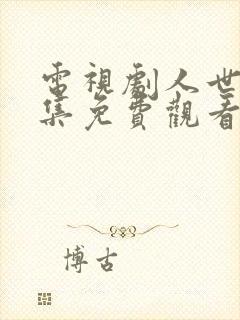 電視劇人世
集免費觀看
博古